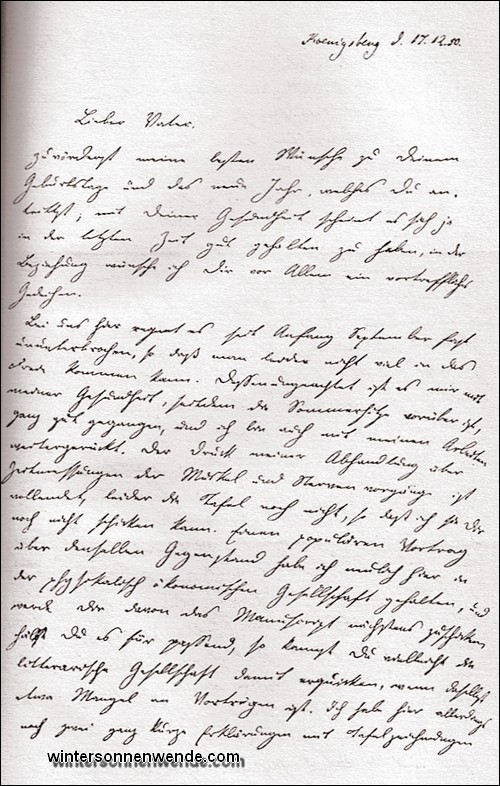 Koenigsberg d. 17.12.50.
Lieber Vater.
zuvörderst meine besten Wünsche zu Deinem
Geburtstage und das neue Jahr, welches Du an-
trittst; mit Deiner Gesundheit scheint es sich ja
in der letzten Zeit gut gehalten zu haben, in der
Beziehung wünsche ich Dir vor Allem ein vortreffliches
Gedeihen.
Bei uns hier regnet es seit Anfang September fast
ununterbrochen, so daß man leider nicht viel in das
Freie kommen kann. Dessenungeachtet ist es mir mit
meiner Gesundheit, seitdem die Sommerhitze vorüber ist,
ganz gut gegangen, und ich bin auch mit meinen Arbeiten
weitergerückt. Der Druck meiner Abhandlung über
Zeitmessungen der Muskel und Nervenvorgänge ist
vollendet, leider die Tafel noch nicht, so daß ich sie Dir
noch nicht schicken kann. Einen populären Vortrag
über denselben Gegenstand habe ich neulich hier in
der physikalisch ökonomischen Gesellschaft gehalten, und
werde Dir davon das Manuscript nächstens zuschicken
hältst Du es für passend, so kannst Du vielleicht die
litterarische Gesellschaft damit erquicken, wenn daselbst
etwa Mangel an Vorträgen ist. Ich habe hier allerdings
noch zwei ganz kurze Erklärungen mit Tafelzeichnungen
wintersonnenwende.com